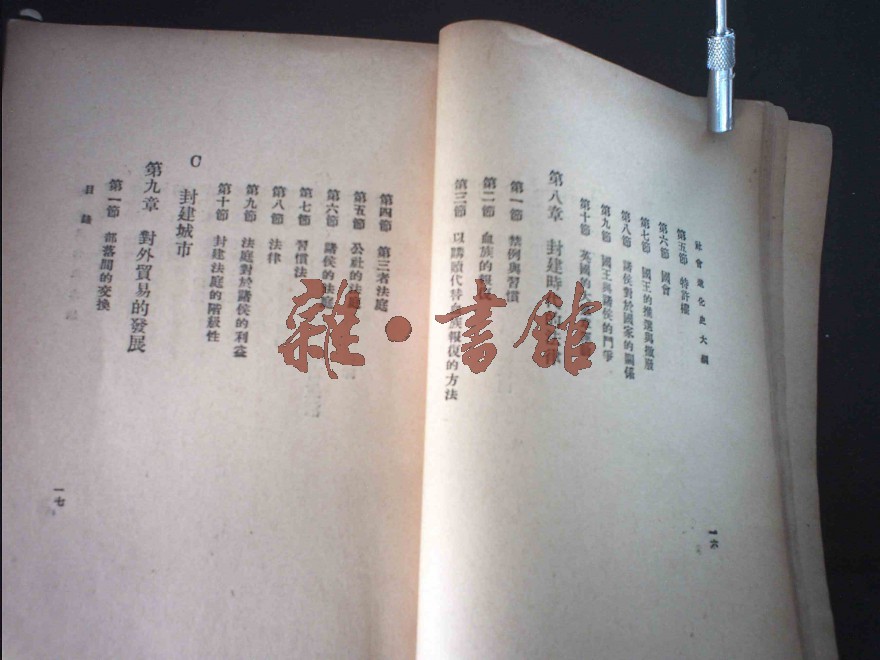 社會進化史大綱
第五節 特許權
第六節 國會
第七節 國王的推選與撤廢
第八節 諸侯對於國家的關係
第九節 國王與諸侯的鬥爭
第十節 英國的
第八章 封建時代的
第一節 禁例與習慣
第二節 血族的報復
第三節 以贖頭代替血族報復的方法
一六
第四節 第三者法庭
第五節 公社的法庭
第六節 諸侯的法庭
第七節 習慣法
第八節 法律
第九節 法庭對於諸侯的利益
第十節 封建法庭的階級性
C 封建城市
第九章 對外貿易的發展
第一節 部落間的交換
目錄
一七
雜·書館